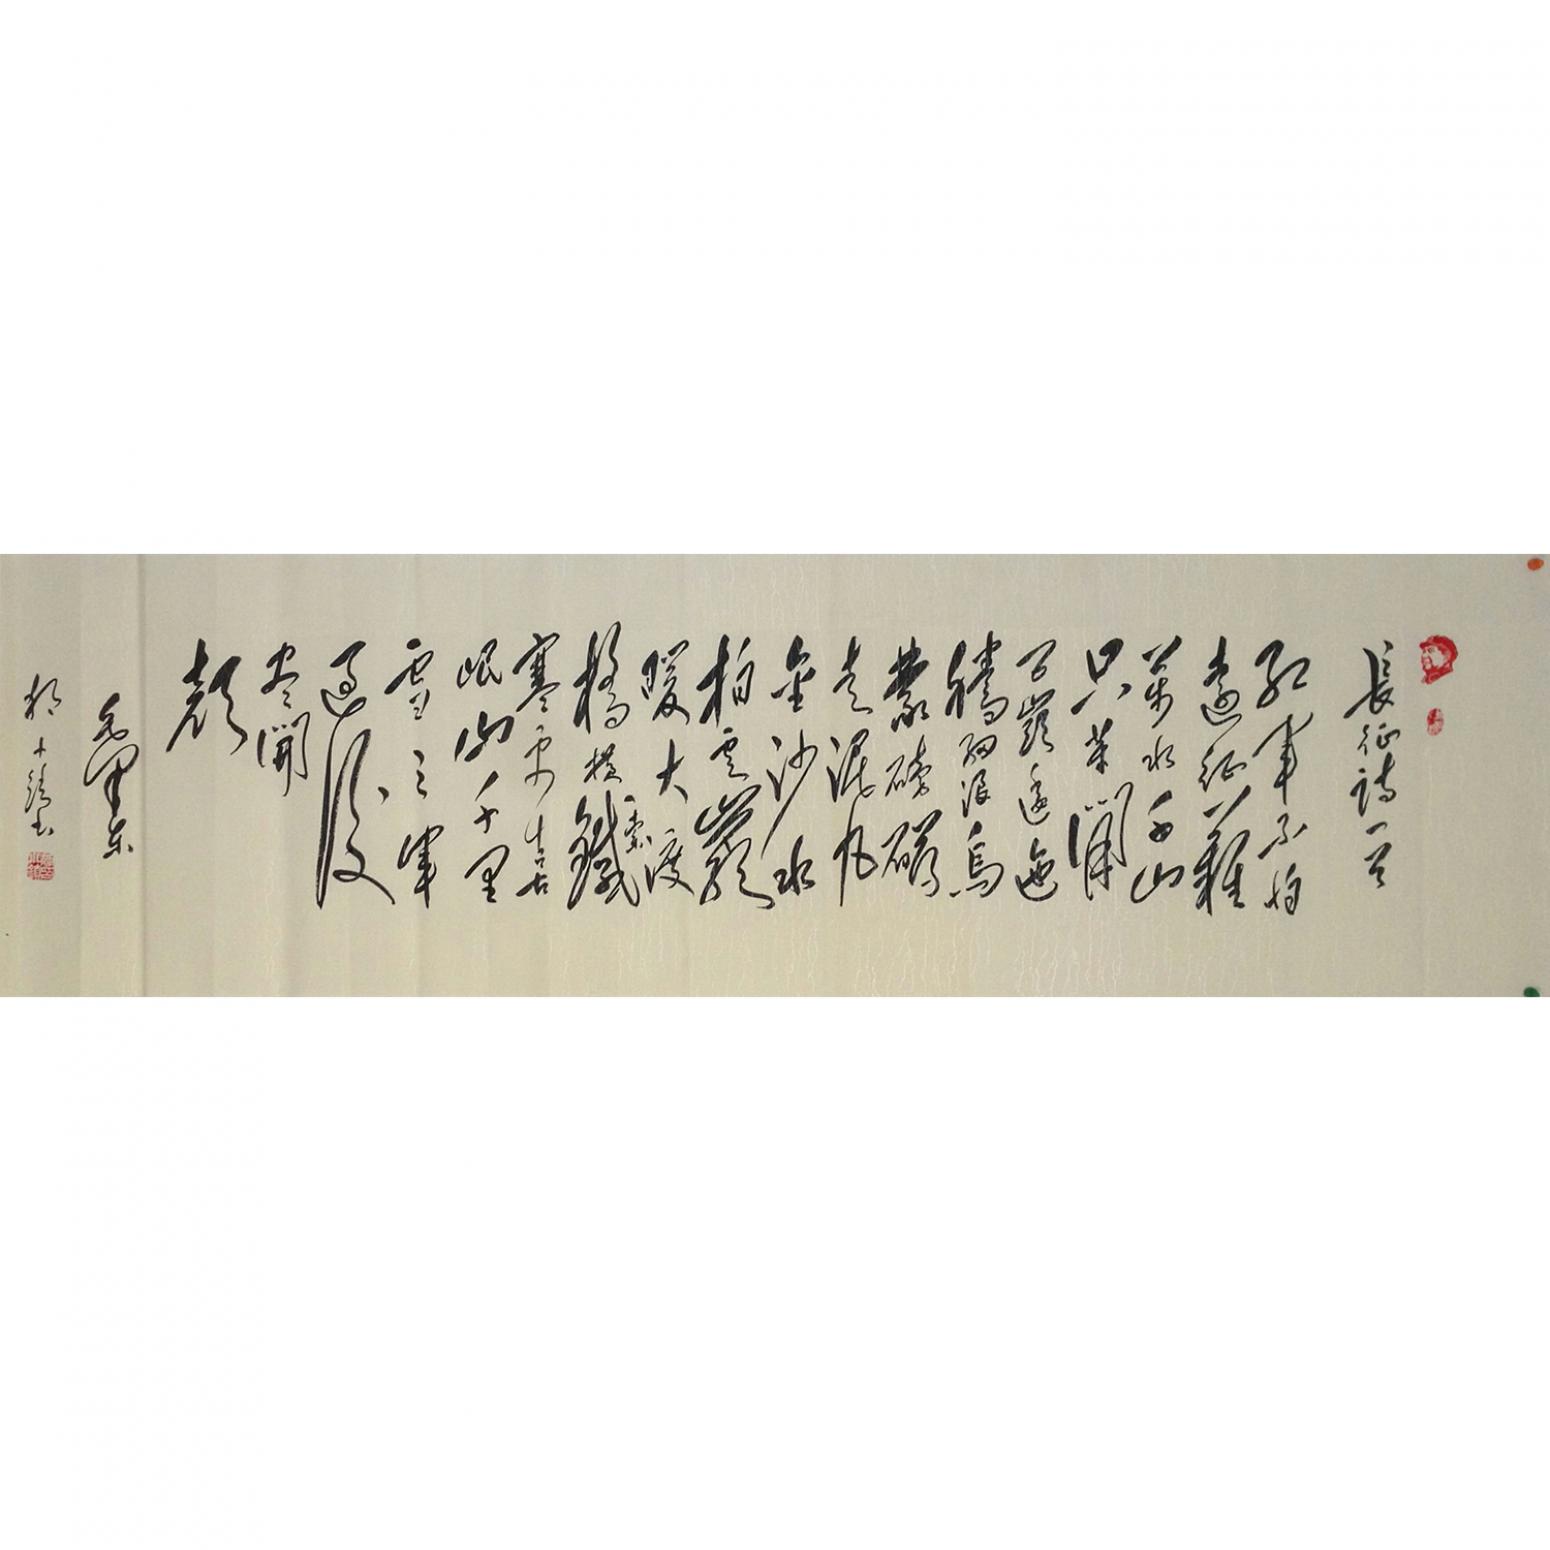 長征詩一首
紅軍不怕
遠征難
萬水千山
只等閒
五嶺逶迤
騰細浪烏
蒙磅礴
走泥丸
金沙水
拍雲崖
暖大渡
橋橫鐵索
寒更喜
岷山千里
雪三軍
過後
盡開
顏
毛澤東